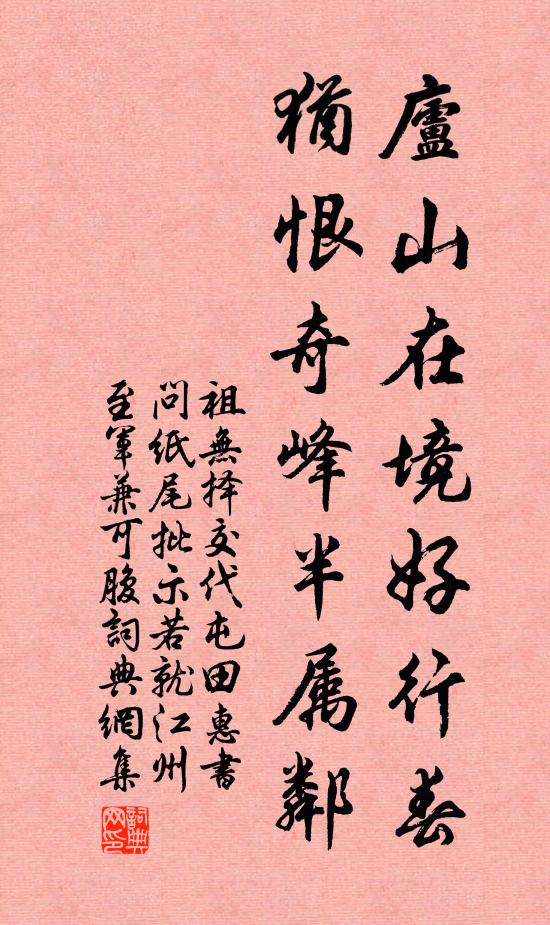 廬山在境好行春
猶恨奇峰半属鄰
祖無择交代屯田惠書
問纸尾批示若就江州
至軍兼可腹詞典網集
詞典
网印